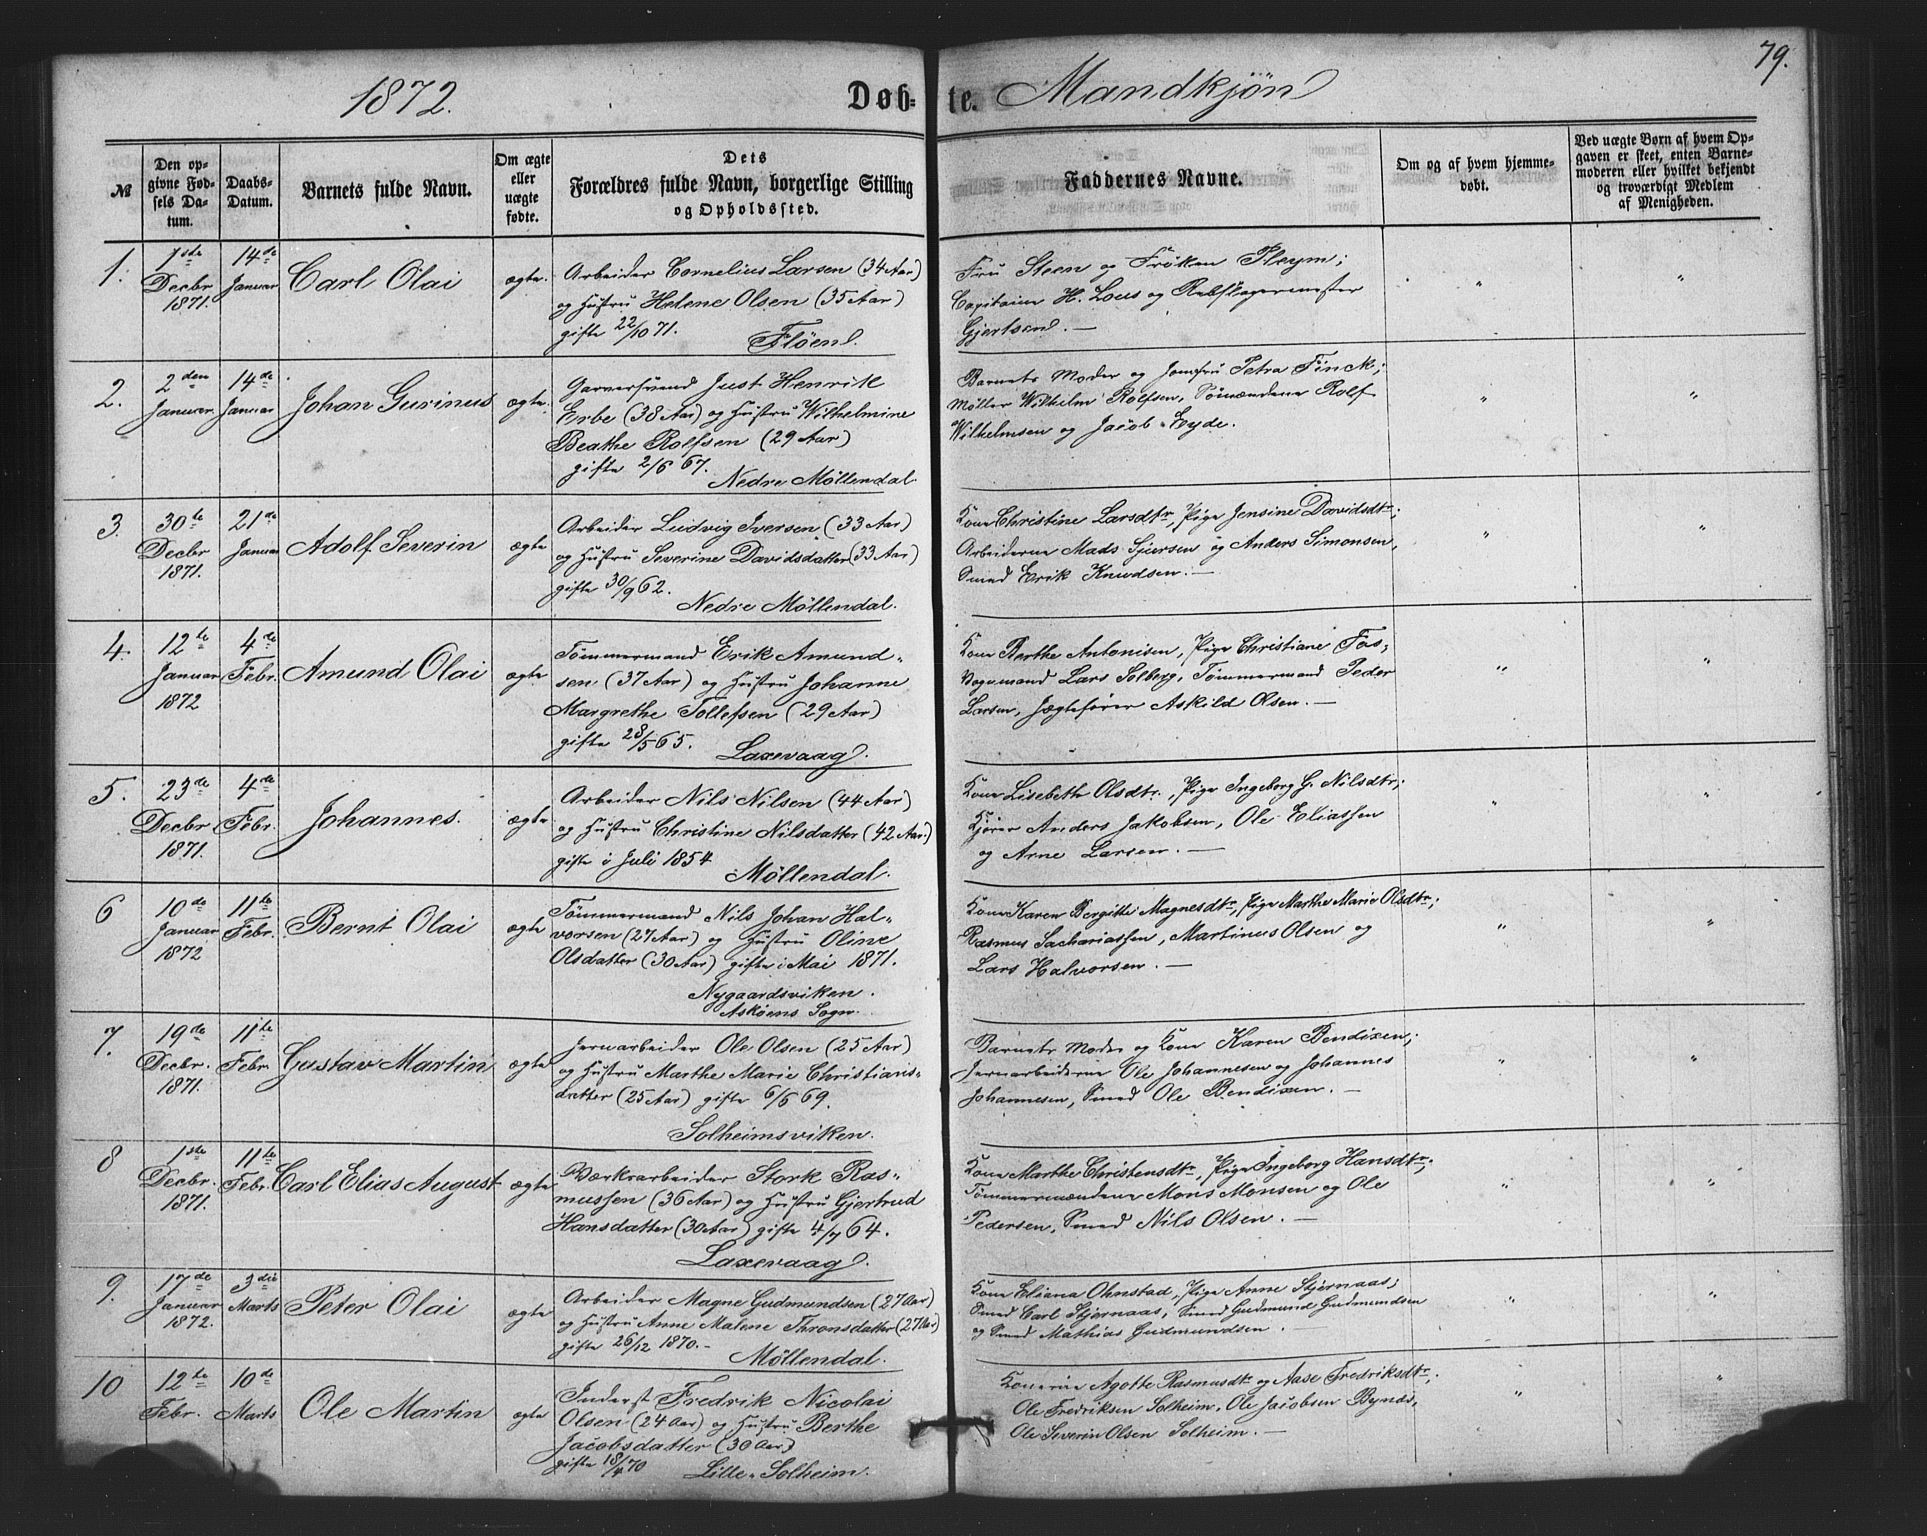 79.
1872.
Døb-te. Mandkjøn
№
Den opgivne Fødsels Datum.
Daabs-Datum.
Barnets fulde Navn.
Om ægte eller uægte fødte.
Dets Forældres fulde Navn, borgerlige Stilling og Opholdssted.
Faddernes Navne.
Om og af hvem hjemmedøbt.
Ved uægte Børn af hvem Opgaven er skeet, enten Barnemoderen eller hvilket bekjendt og troværdigt Medlem af Menigheden.
1.
1ste Decbr 1871.
14de Januar
Carl Olai
ægte.
Arbeider Cornelius Larsen (34 Aar)
og Hustru Helene Olsen (35 Aar)
gifte 22/10 71.
Fløen.
Fru Steen og Frøken Pleym;
Capitaine H. Lous og Rebslagermester
Gjertsen. —
" "
2.
2den Januar
14de Januar
Johan Gurinus
ægte.
Garversvend Just Henrik
Erbe (38 Aar) og Hustru Wilhelmine
Beathe Rolfsen (29 Aar)
gifte 2/6 67.
Nedre Møllendal.
Barnets Moder og Jomfru Petra Finck;
Møller Wilhelm Rolfsen, Sømændene Rolf
Wilhelmsen og Jacob Eyde.
" "
3.
30te Decbr 1871.
21de Januar
Adolf Severin
ægte
Arbeider Ludvig Iversen (33 Aar)
og Hustru Severine Davidsdatter (33 Aar)
gifte 30/9 62.
Nedre Møllendal.
Kone Christine Larsdtr, Pige Jensine Davidsdtr;
Arbeiderne Mads Sjursen og Anders Simonsen,
Smed Erik Knudsen. —
" "
4.
12te Januar 1872
4de Febr.
Amund Olai
ægte
Tømmermand Erik Amund-
sen (37 Aar) og Hustru Johanne
Margrethe Tollefsen (29 Aar)
gifte 28/5 65.
Laxevaag.
Kone Berthe Antonisen, Pige Christiane Fos;
Vognmand Lars Solberg, Tømmermand Peder
Larsen, Jægtefører Askild Olsen. —
" "
5.
23de Decbr 1871.
4de Febr.
Johannes.
ægte
Arbeider Nils Nilsen (44 Aar)
og Hustru Christine Nilsdatter (42 Aar)
gifte i Juli 1854
Møllendal.
Kone Lisebeth Olsdtr., Pige Ingeborg G. Nilsdtr;
Kjører Anders Jakobsen, Ole Eliassen
og Arne Larsen. —
" "
6
10de Januar 1872
11te Febr.
Bernt Olai
ægte
Tømmermand Nils Johan Hal-
vorsen (27 Aar) og Hustru Oline
Olsdatter (30 Aar) gifte i Mai 1871.
Nygaardsviken.
Askøens Sogn.
Kone Karen Bergitte Magnesdtr, Pige Marthe Marie Olsdtr;
Rasmus Sachariassen, Martinus Olsen og
Lars Halvorsen. —
" "
7.
19de Decbr. 1871.
11te Febr.
Gustav Martin
ægte
Jernarbeider Ole Olsen (25 Aar)
og Hustru Marthe Marie Christians-
datter (25 Aar) gifte 6/6 69.
Solheimsviken.
Barnets Moder og Kone Karen Bendixen;
Jernarbeiderne Ole Johannesen og Johannes
Johannesen, Smed Ole Bendixen. —
" "
8
1ste Decbr. 1871.
11te Febr.
Carl Elias August
ægte
Værksarbeider Stork Ras-
mussen (36 Aar) og Hustru Gjertrud
Hansdatter (30 Aar) gifte 4/7 64.
Laxevaag.
Kone Marthe Christensdtr, Pige Ingeborg Hansdtr;
Tømmermændene Mons Monsen og Ole
Pedersen, Smed Nils Olsen. —
" "
9.
17de Januar 1872.
3die Marts
Peter Olai
ægte
Arbeider Magne Gudmundsen (27 Aar)
og Hustru Anne Malene Thronsdatter (27 Aar)
gifte 26/12 1870. —
Møllendal.
Kone Eliana Ohnstad, Pige Anne Stjernaas;
Smed Carl Stjernaas, Smed Gudmund Gudmundsen
og Smed Mathias Gudmundsen.
" "
10
12te Febr.
10de Marts
Ole Martin
ægte
Inderst Fredrik Nicolai
Olsen (24 Aar) og Hustru Berthe
Jacobsdatter (30 Aar)
gifte 18/4 70
Lille-Solheim.
Konerne Agotte Rasmusdtr og Aase Fredriksdtr.
Ole Fredriksen Solheim, Ole Jacobsen Bynæs,
Ole Severin Olsen Solheim. —
" "